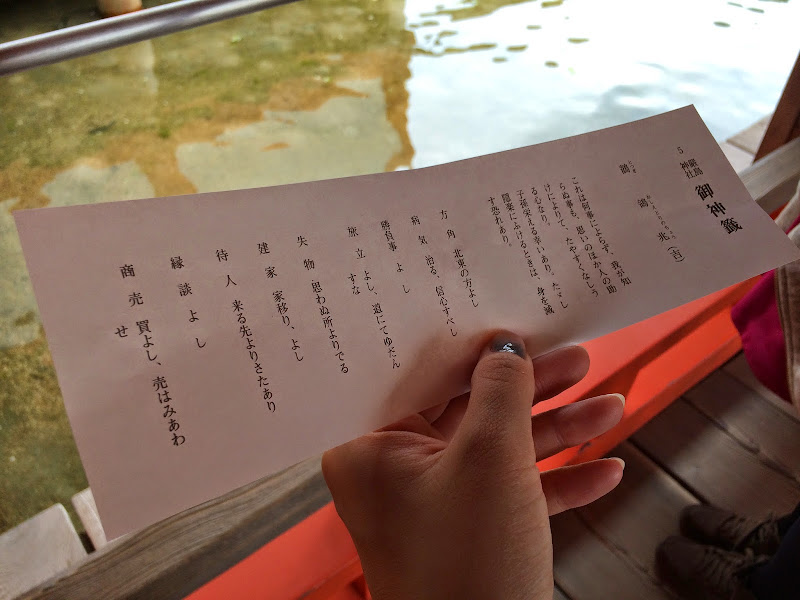 5
厳島神社
御神籤
鶴
御兆(吉)
これは何事によらず、我が知
らぬ事も、思いのほか人の助
けによりて、たやすくなしう
る心なり。
子孫栄える幸いあり、ただし
隠楽にふけるときは、身を滅
す恐れあり。
方角 北東の方よし
病気 治る、信心すべし
勝負事 よし
旅立 よし、道にてゆだん
すな
失物 思わぬ所よりでる
建家 家移り、よし
待人 来る先よりさたあり
縁談 よし
商売 買よし、売はみあわ
せ